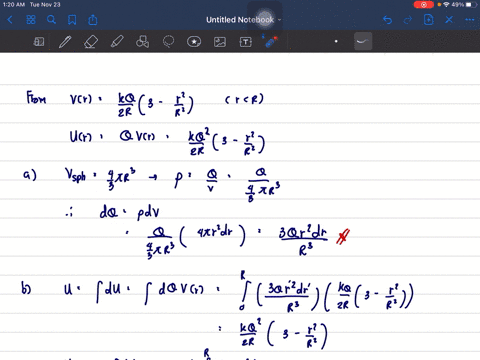 1:20 AM Tue Nov 23
49%
Untitled Notebook
From V(r) = kQ/2R (3 - r²/R²) (r<R)
U(r) = QV(r) = kQ²/2R (3 - r²/R²)
a) Vsph = 4/3 πR³ → ρ = Q/V = Q/(4/3 πR³)
∴ dQ = ρdV
= Q/(4/3 πR³) (4πr²dr) = 3Qr²dr/R³
b) U = ∫dU = ∫dQ V(r) = ∫₀ᴿ (3Qr'²dr'/R³)(kQ/2R (3 - r²/R²))
= kQ²/2R (3 - r²/R²)